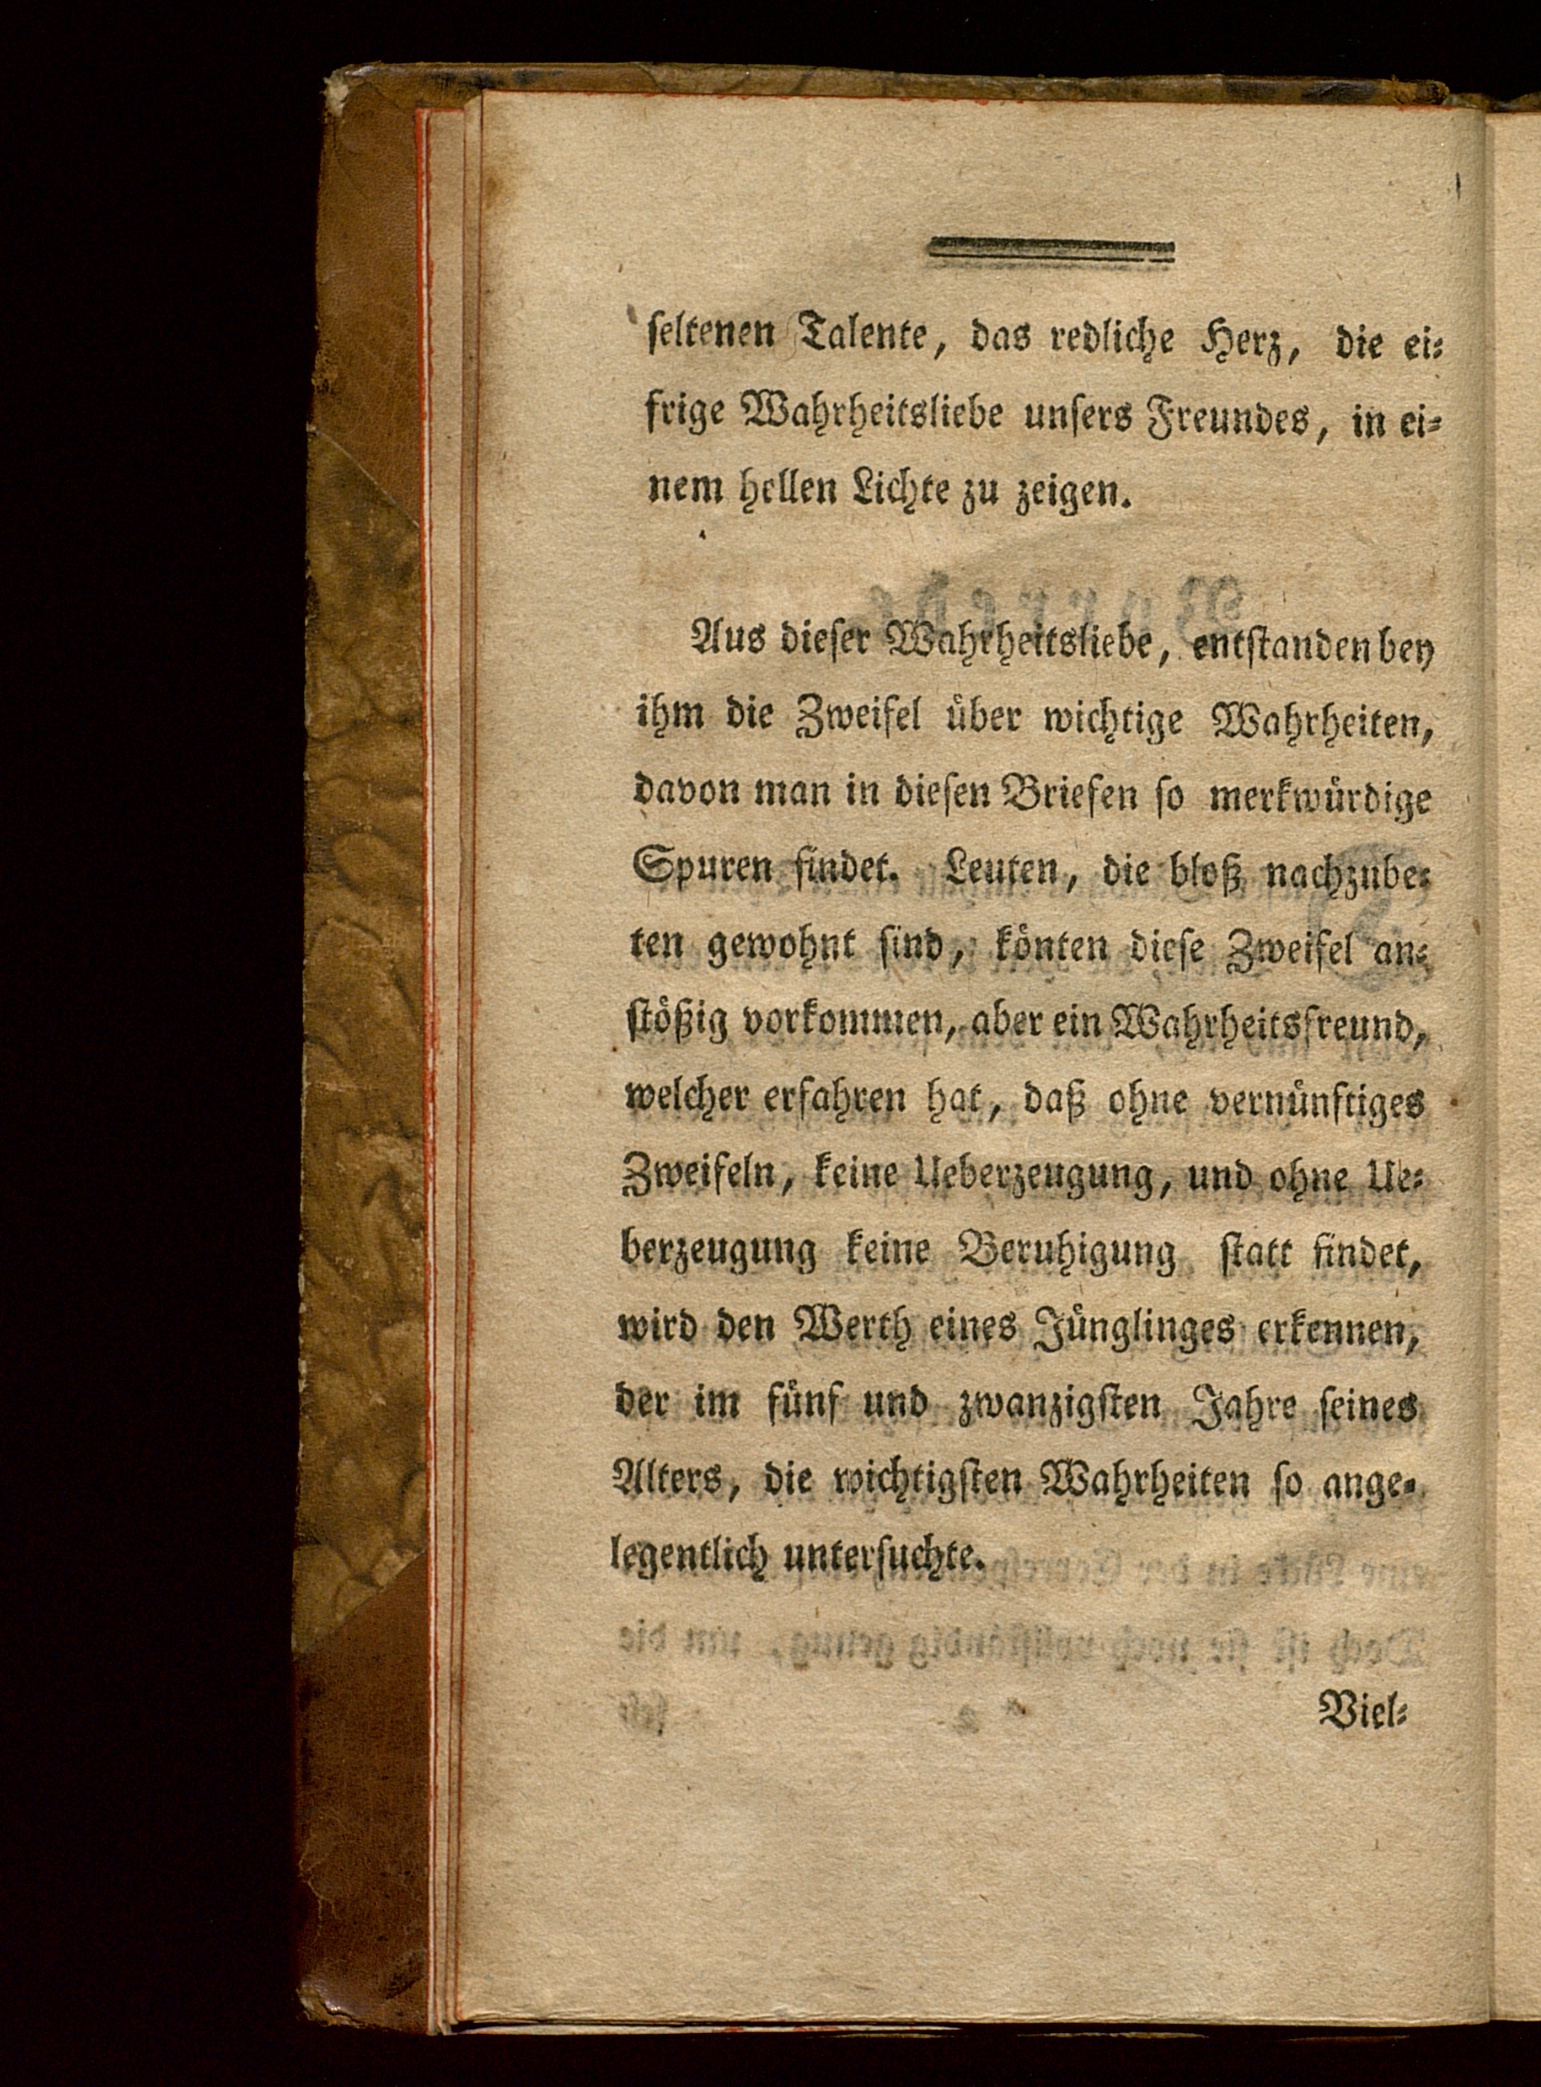 ſeltenen Talente, das redliche Herz, die ei⸗
frige Wahrheitsliebe unſers Freundes, in ei⸗
nem hellen Lichte zu zeigen.
Aus dieſer Wahrheitsliebe, entſtanden bey
ihm die Zweifel uͤber wichtige Wahrheiten,
davon man in dieſen Briefen ſo merkwuͤrdige
Spuren findet. Leuten, die bloß nachzube⸗
ten gewohnt ſind, koͤnten dieſe Zweifel an⸗
ſtoͤßig vorkommen, aber ein Wahrheitsfreund,
welcher erfahren hat, daß ohne vernuͤnftiges
Zweifeln, keine Ueberzeugung, und ohne Ue⸗
berzeugung keine Beruhigung ſtatt findet,
wird den Werth eines Juͤnglinges erkennen,
der im fuͤnf und zwanzigſten Jahre ſeines
Alters, die wichtigſten Wahrheiten ſo ange⸗
legentlich unterſuchte.
Viel⸗